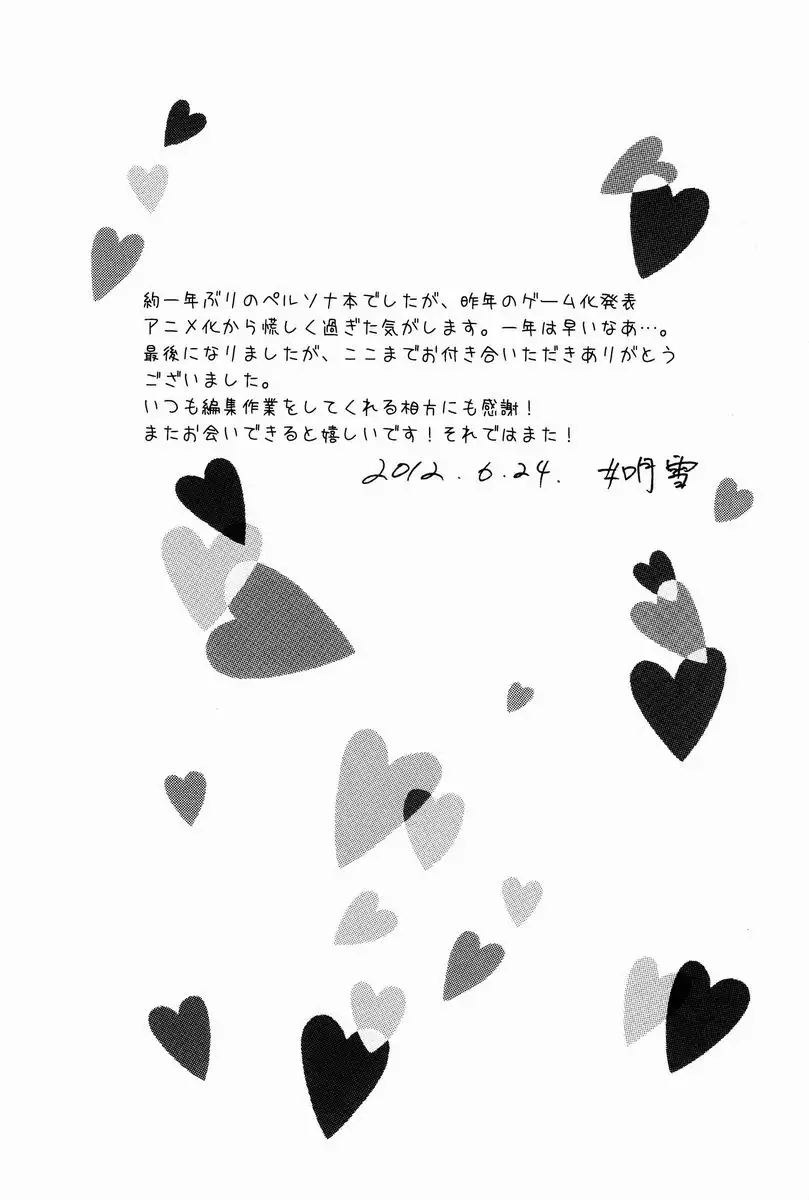 約一年ぶりのペルソナ本でしたが、昨年のゲーム化発表
アニメ化から慌しく過ぎた気がします。一年は早いなあ…。
最後になりましたが、ここまでお付き合いただきありがとう
ございました。
いつも編集作業をしてくれる相方にも感謝！
またお会いできると嬉しいです！それではまた！
2012.6.24. 如月雪